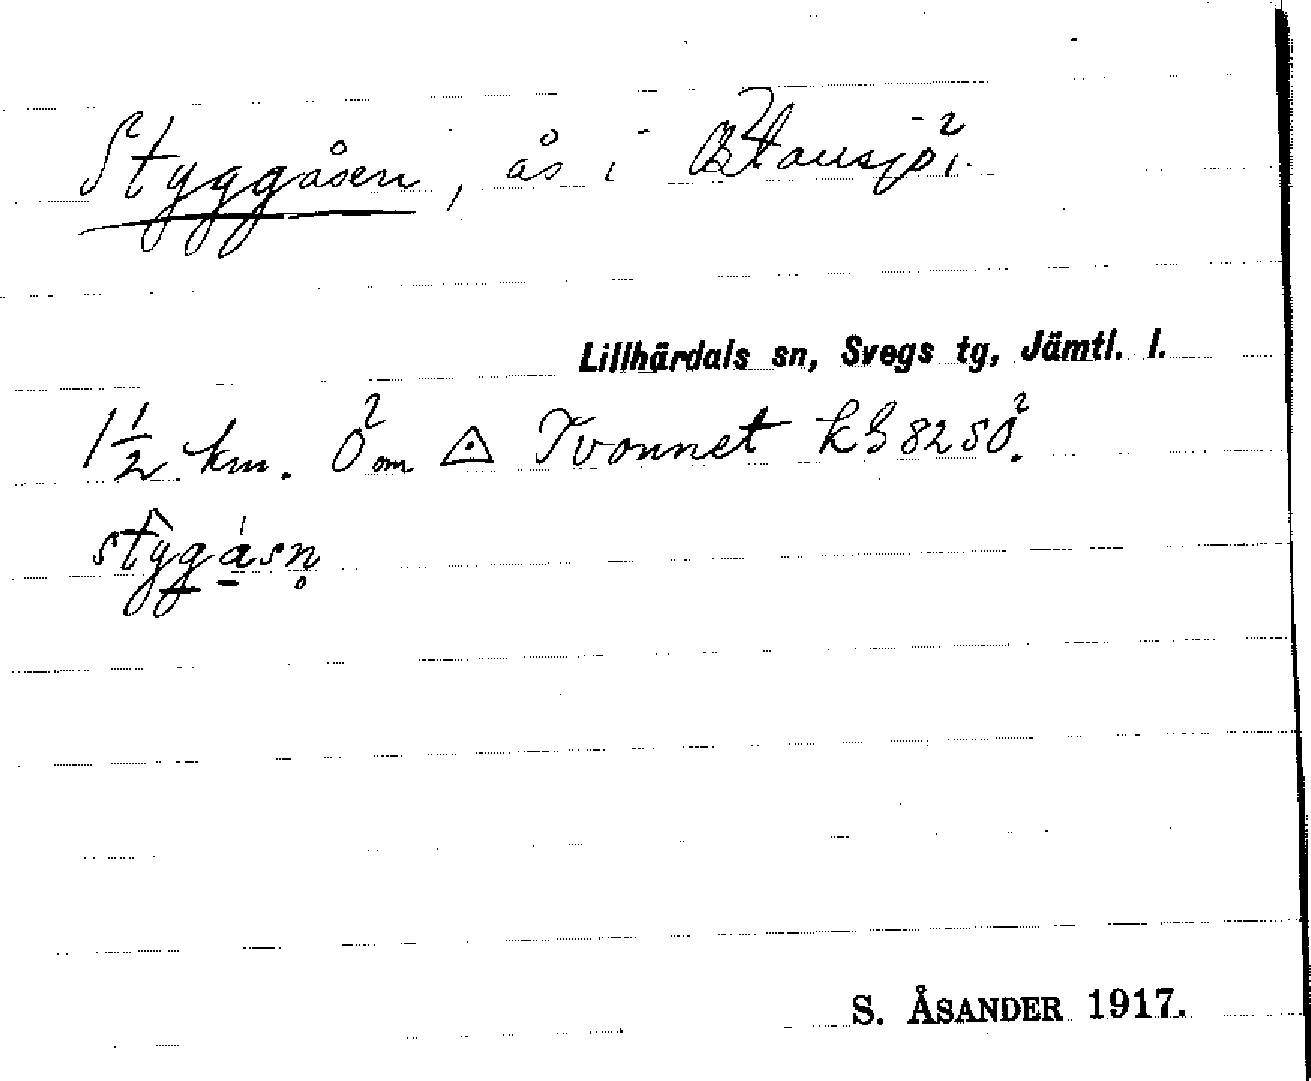 Styggåsen, ås i Östansjö.
Lillhärdals sn, Svegs tg, Jämtl. l.
1½ km. Ö om △ Tvonnet kb 82 SÖ.
stŷgåsn̥
S. ÅSANDER 1917.